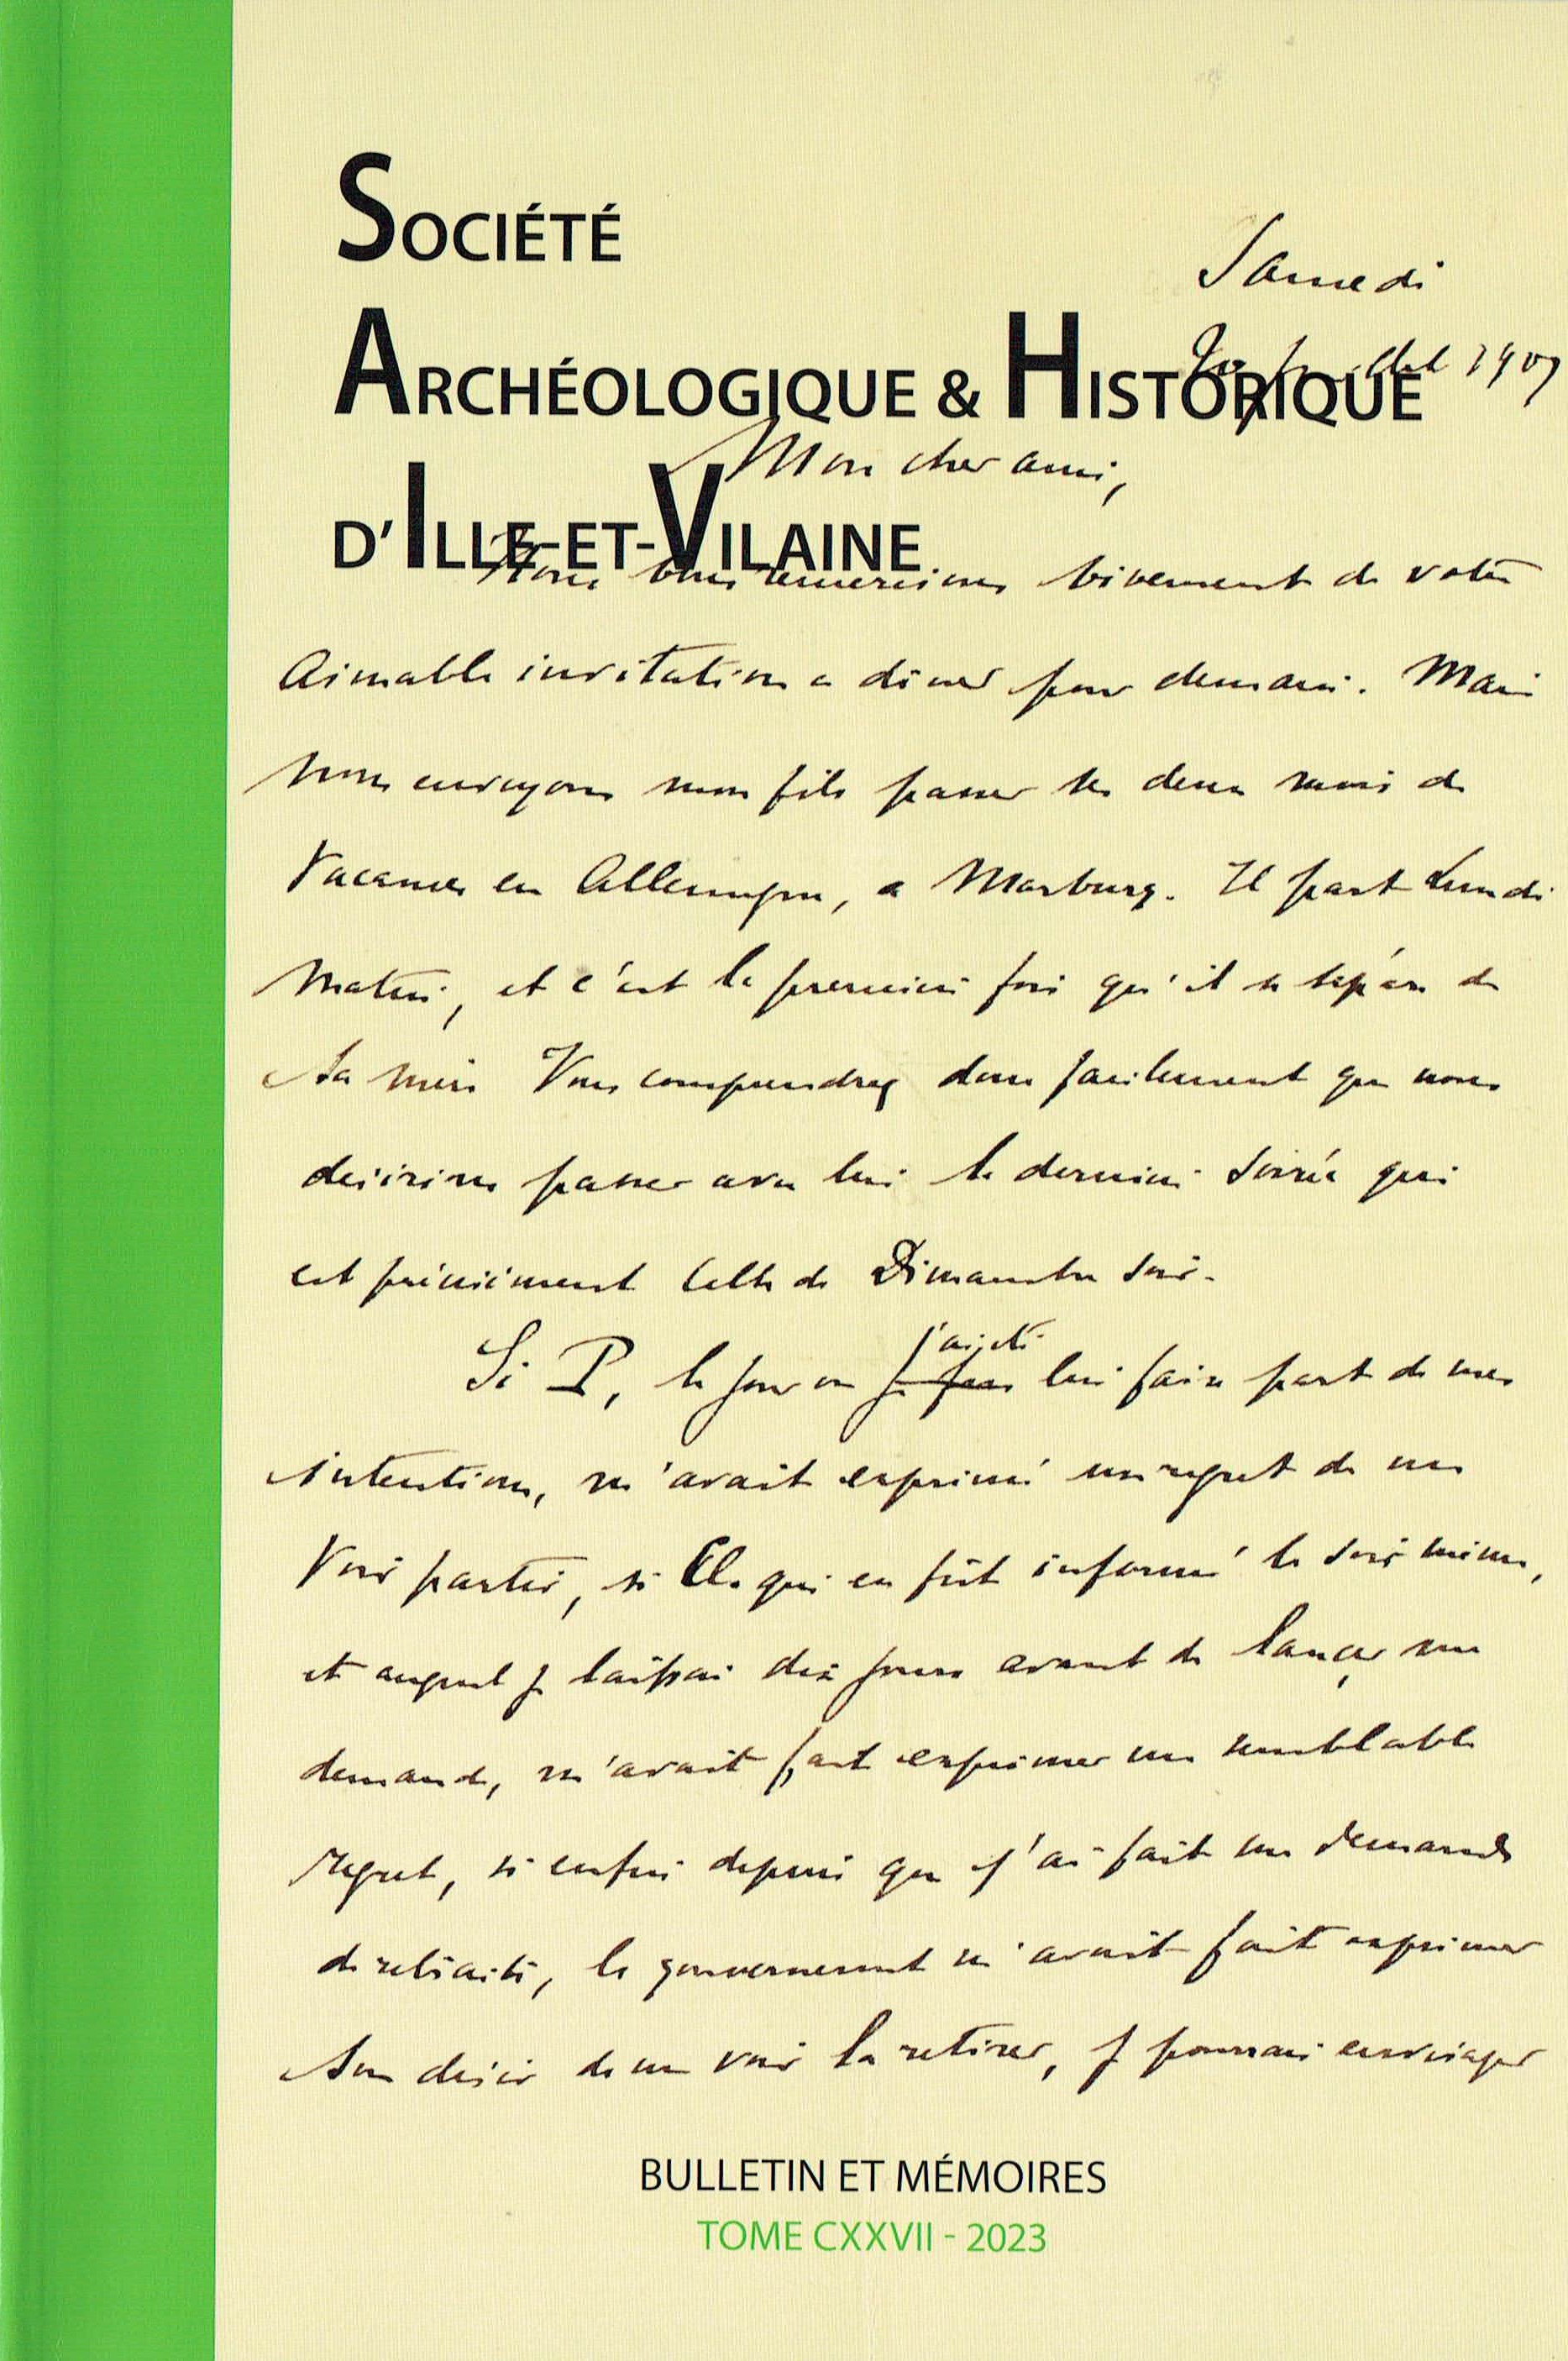 SOCIÉTÉ
ARCHÉOLOGIQUE & HISTORIQUE
D'ILLE-ET-VILAINE
Samedi
juillet 1907
Mon cher ami,
Nous vous remercions vivement de votre
aimable invitation a diner pour demain. Mais
nous envoyons mon fils passer ses deux mois de
vacances en Allemagne, a Marburg. Il part Lundi
matin, et c'est la premiere fois qu'il se sépare de
sa mère Vous comprendrez donc facilement que nous
desirions passer avec lui la dernière soirée qui
est précisément celle de Dimanche soir.
Si P, le jour ou j'ai été lui faire part de mes
intentions, m'avait exprimé un regret de me
voir partir, si Cl. qui en fut informé le soir même,
et auquel je laissai dix jours avant de lancer ma
demande, m'avait fait exprimer un semblable
regret, si enfin depuis que j'ai fait ma demande
de retraite, le gouvernement m'avait fait exprimer
son désir de me voir la retirer, je pourrais envisager
BULLETIN ET MÉMOIRES
TOME CXXVII - 2023